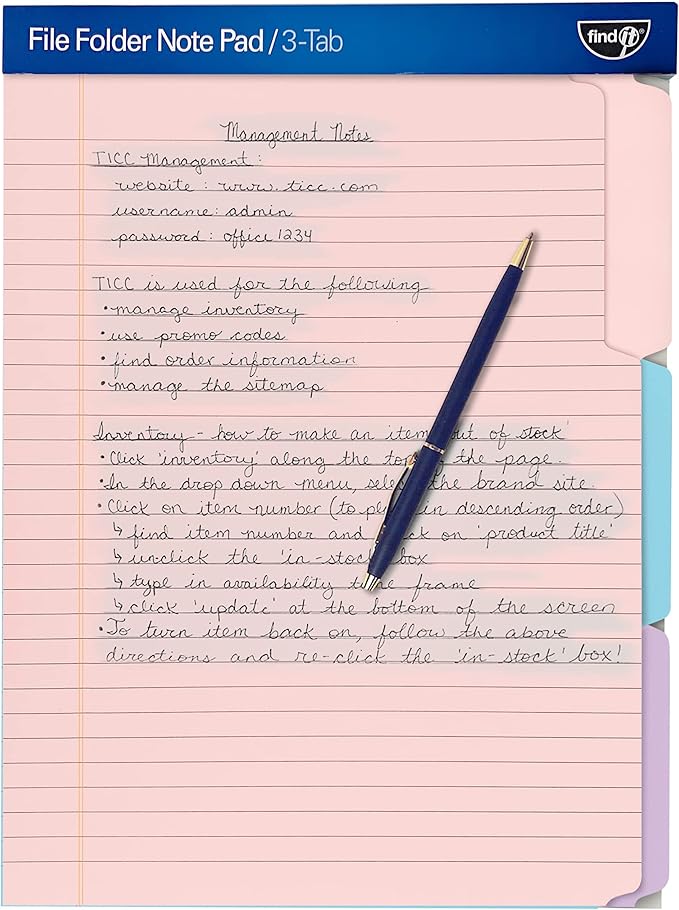 File Folder Note Pad / 3-Tab
find it®
Management Notes
TICC Management :
website : www.ticc.com
username: admin
password : office 1234
TICC is used for the following
• manage inventory
• use promo codes
• find order information
• manage the sitemap
Inventory - how to make an item out of stock'
• Click 'inventory' along the top the page.
• In the drop down menu, select the brand site.
• Click on item number (to in descending order)
↳ find item number and click on 'product title'
↳ unclick the 'in-stock' box
↳ type in availability time frame
↳ click 'update' at the bottom of the screen
• To turn item back on, follow the above
directions and re-click the 'in-stock' box!